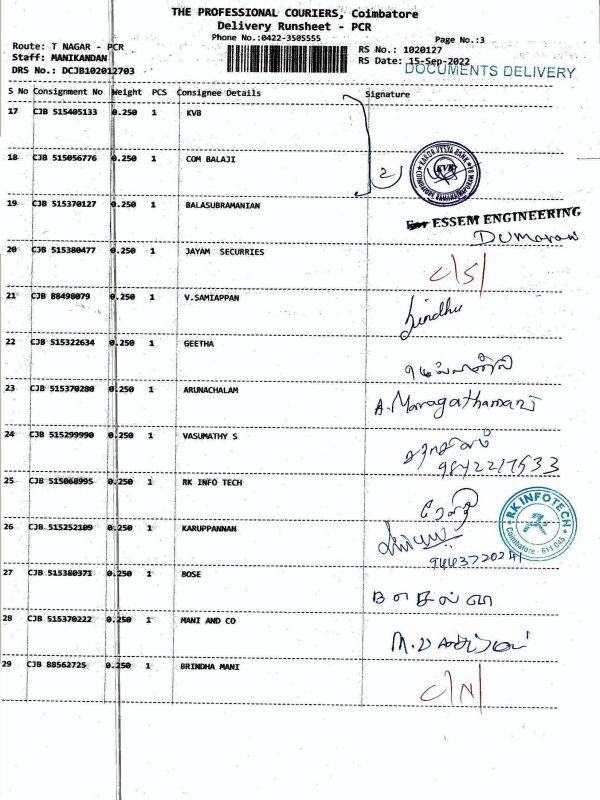 THE PROFESSIONAL COURIERS, Coimbatore
Delivery Runsheet - PCR
Phone No.:0422-3505555
Page No.:3
Route: T NAGAR - PCR
Staff: MANIKANDAN
DRS No.: DCJB102012703
RS No.: 1020127
RS Date: 15-Sep-2022
DOCUMENTS DELIVERY
S No Consignment No Weight PCS Consignee Details Signature
17 CJB 515405133 0.250 1 KVB
18 CJB 515056776 0.250 1 COM BALAJI
2
KARUR VYSYA BANK
KVB
19 CJB 515370127 0.250 1 BALASUBRAMANIAN
For ESSEM ENGINEERING
20 CJB 515380477 0.250 1 JAYAM SECURRIES
C/S/
21 CJB 88498079 0.250 1 V.SAMIAPPAN
Sindhu
22 CJB 515322634 0.250 1 GEETHA
23 CJB 515370280 0.250 1 ARUNACHALAM
A. Maragathamani
24 CJB 515299990 0.250 1 VASUMATHY S
9842217533
25 CJB 515068995 0.250 1 RK INFO TECH
RK INFOTECH
Coimbatore - 641 045
26 CJB 515252109 0.250 1 KARUPPANNAN
27 CJB 515380371 0.250 1 BOSE
28 CJB 515370222 0.250 1 MANI AND CO
29 CJB 88562725 0.250 1 BRINDHA MANI
C/N/